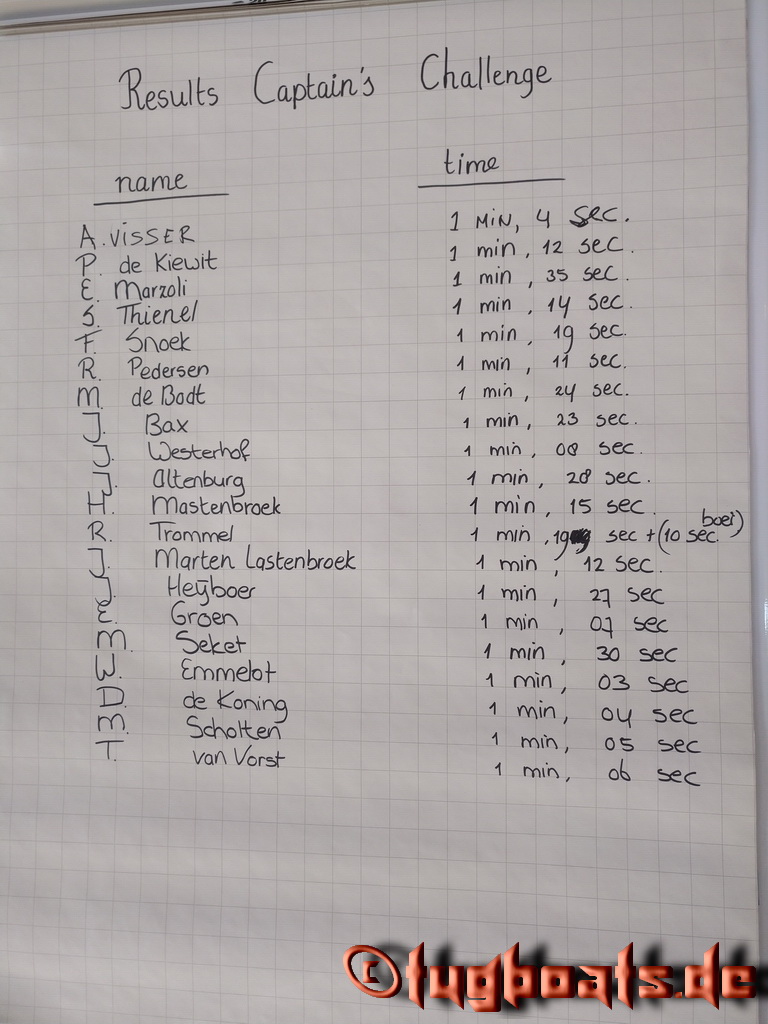 Results Captain's Challenge
name time
A. VISSER 1 MIN, 4 SEC.
P. de Kiewit 1 min, 12 sec.
E. Marzoli 1 min, 35 sec.
S. Thienel 1 min, 14 sec.
F. Snoek 1 min, 19 sec.
R. Pedersen 1 min, 11 sec.
M. de Bodt 1 min, 24 sec.
J. Bax 1 min, 23 sec.
J. Westerhof 1 min, 08 sec.
J. Altenburg 1 min, 28 sec.
H. Mastenbroek 1 min, 15 sec.
R. Trommel 1 min, 19 sec + (10 sec. boei)
J. Marten Lastenbroek 1 min, 12 sec.
J. Heijboer 1 min, 27 sec
E. Groen 1 min, 07 sec
M. Seket 1 min, 30 sec
W. Emmelot 1 min, 03 sec
D. de Koning 1 min, 04 sec
M. Scholten 1 min, 05 sec
T. van Vorst 1 min, 06 sec
©tugboats.de